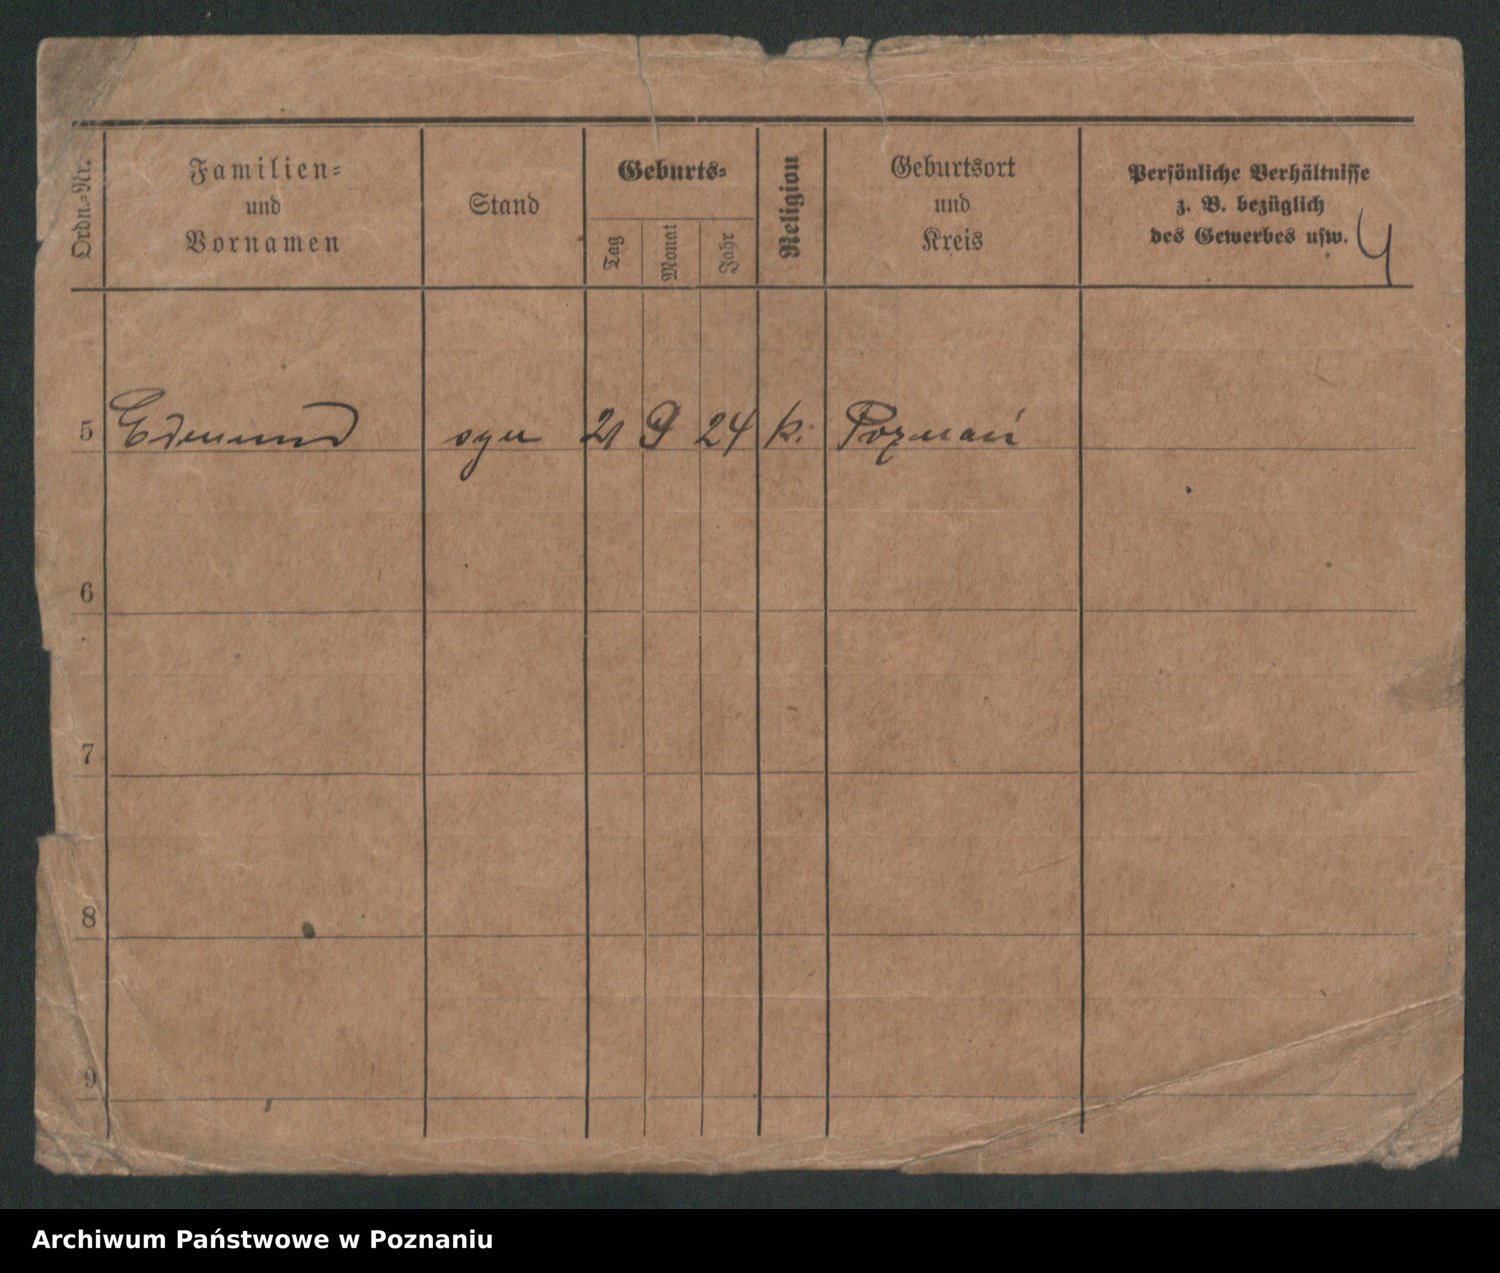 Ordn.-Nr.
Familien-
und
Vornamen
Stand
Geburts-
Tag
Monat
Jahr
Religion
Geburtsort
und
Kreis
Persönliche Verhältnisse
z. B. bezüglich
des Gewerbes usw.
5 Edmund syn 21 9 24 k. Poznań
6
7
8
9
Archiwum Państwowe w Poznaniu